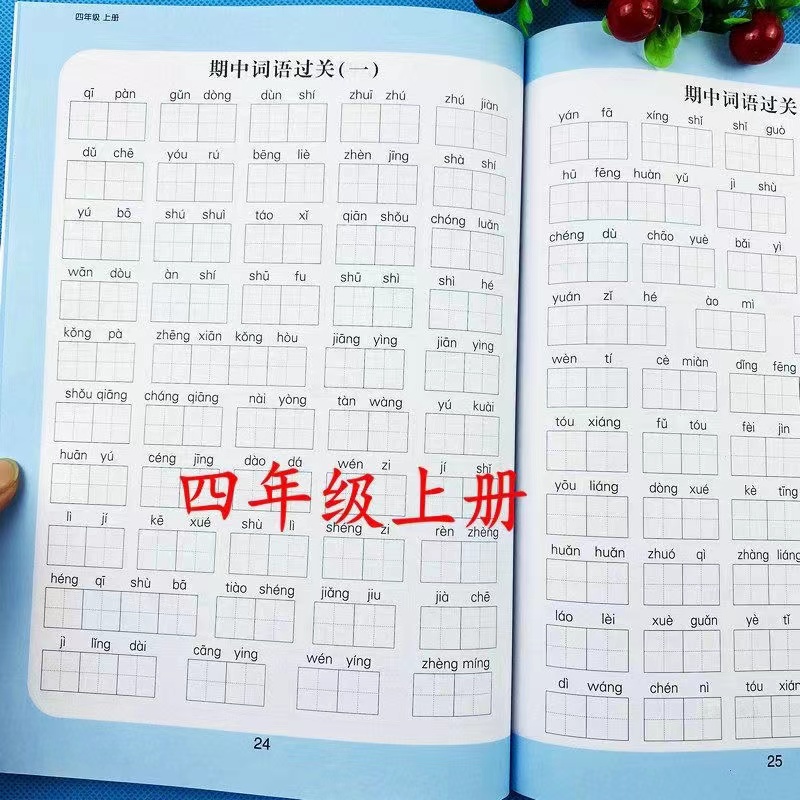 四年级 上册
期中词语过关(一)
qī pàn gǔn dòng dùn shí zhuī zhú zhú jiàn
dǔ chē yóu rú bēng liè zhèn jīng shà shí
yú bō shú shuì táo xǐ qiān shǒu chóng luǎn
wān dòu àn shí shū fu shū shì shì hé
kǒng pà zhēng xiān kǒng hòu jiāng yìng jiān yìng
shǒu qiāng cháng qiāng nài yòng tàn wàng yú kuài
huān yú céng jīng dào dá wén zi jí shǐ
四年级上册
lì jí kē xué shù lì shéng zi rèn zhèng
héng qī shù bā tiào shéng jiǎng jiu jià chē
jì lǐng dài cāng ying wén yíng zhèng míng
24
期中词语过关
yán fā xíng shǐ shǐ guò
hū fēng huàn yǔ jì shù
chéng dù chāo yuè bǎi yì
yuán zǐ hé ào mì
wèn tí cè miàn dǐng fēng
tóu xiáng fǔ tóu fèi jìn
yōu liáng dòng xué kè tīng
huǎn huǎn zhuó qì zhàng liáng
láo lèi xuè guǎn yè wǎ
dì wáng chén nì tóu xián
25